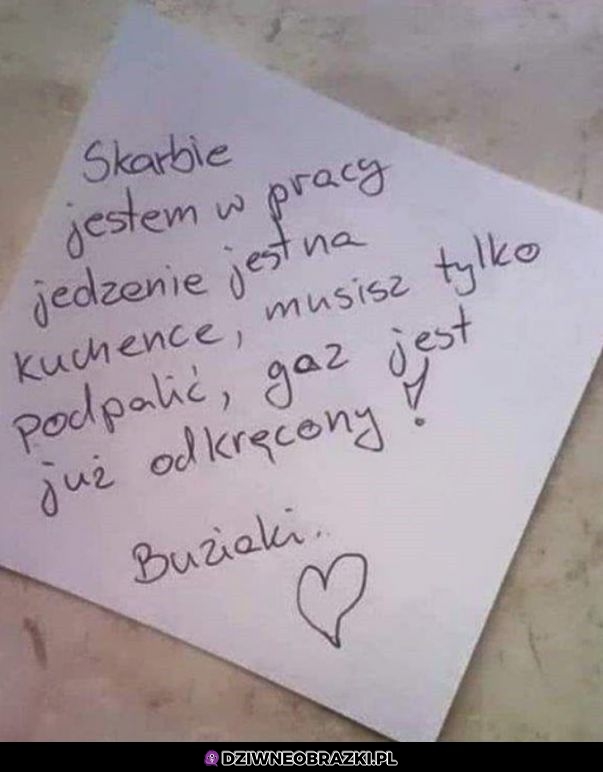 Skarbie
jestem w pracy
jedzenie jest na
kuchence, musisz tylko
podpalić, gaz jest
już odkręcony!
Buziaki..
DZIWNEOBRAZKI.PL